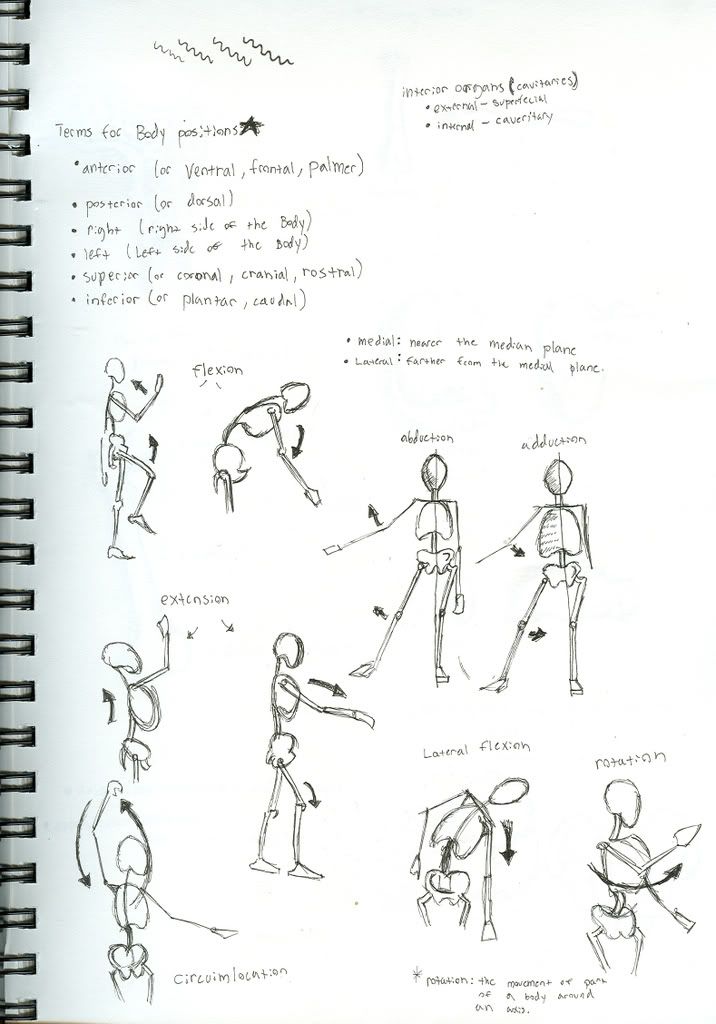 interior organs (cavitaries)
• external - superfecial
• internal - caveritary
Terms for Body positions
• anterior (or ventral, frontal, palmer)
• posterior (or dorsal)
• right (right side of the Body)
• left (Left side of the Body)
• superior (or coronal, cranial, rostral)
• inferior (or plantar, caudal)
• medial: nearer the median plane
• Lateral: farther from the medial plane.
flexion
abduction
adduction
extension
Lateral flexion
rotation
circuimlocation
* rotation: the movement of part
of a body around
an axis.